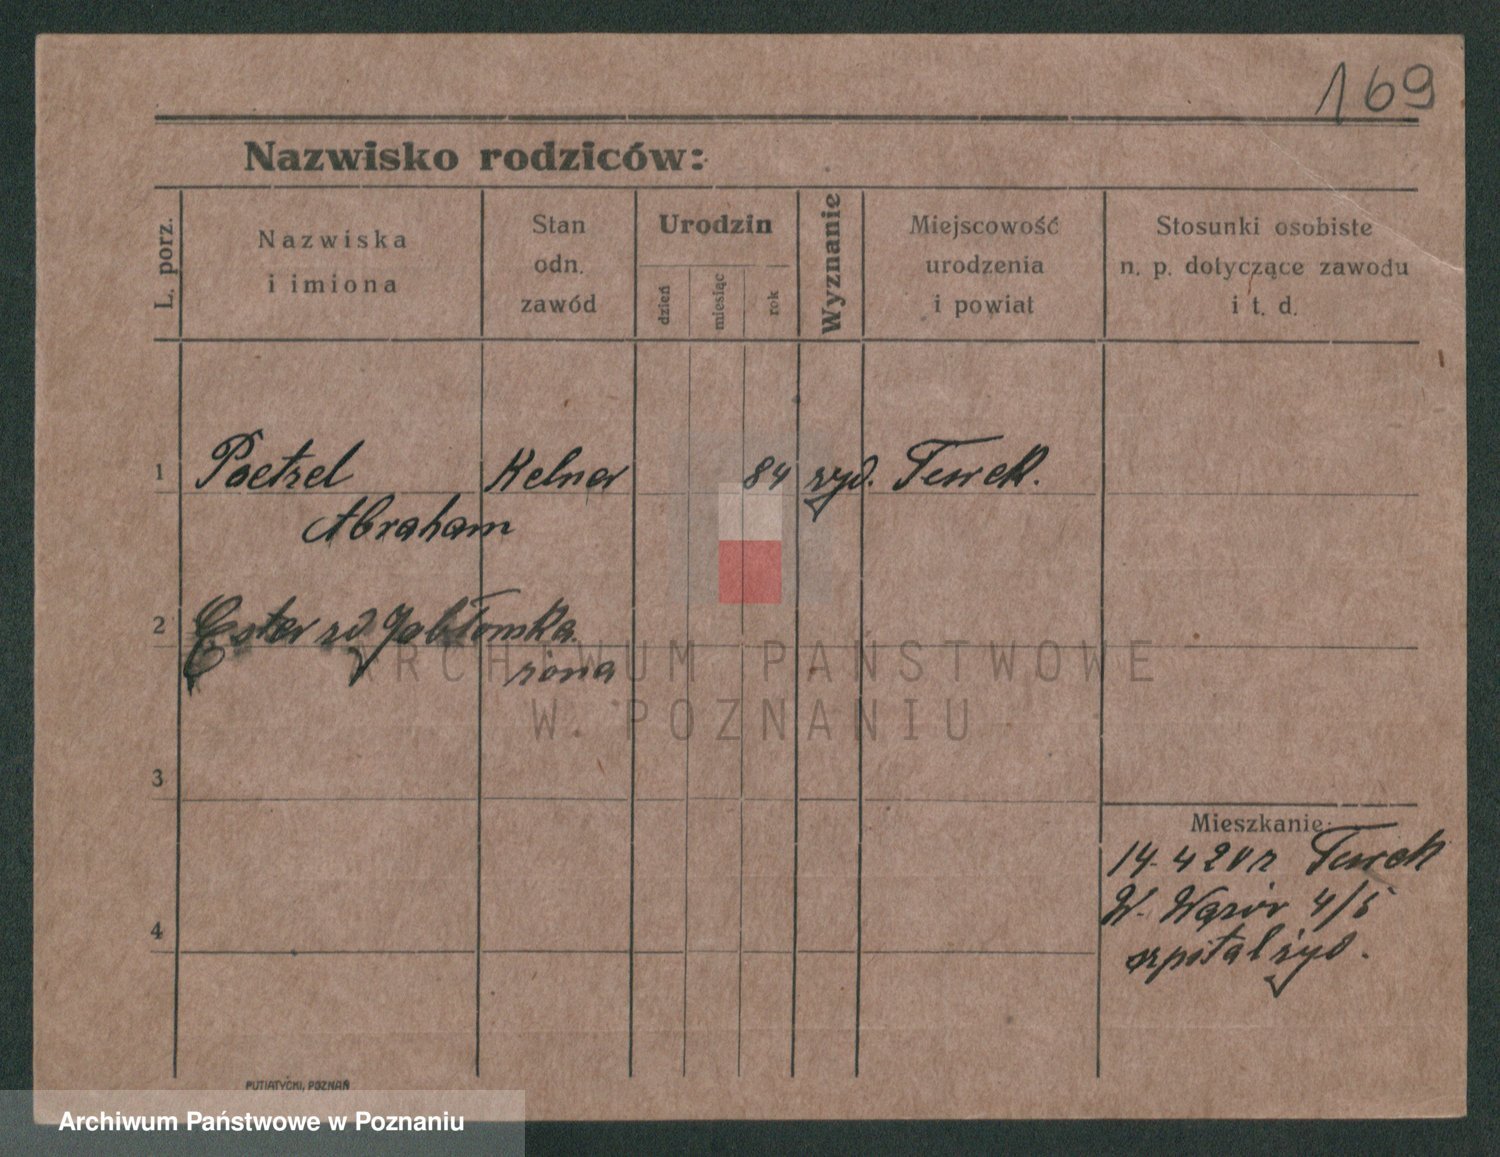 169
Nazwisko rodziców:
L. porz.
Nazwiska
i imiona
Stan
odn.
zawód
Urodzin
dzień
miesiąc
rok
Wyznanie
Miejscowość
urodzenia
i powiat
Stosunki osobiste
n. p. dotyczące zawodu
i t. d.
1 Paetzel Kelner 84 żyd. Turek.
Abraham
2 Ester zd Jabłonska
żona
3
4
Mieszkanie:
14. 4 20 r Turek
W. 4/5
szpital żyd.
ARCHIWUM PAŃSTWOWE
W POZNANIU
PUTIATYCKI, POZNAŃ
Archiwum Państwowe w Poznaniu